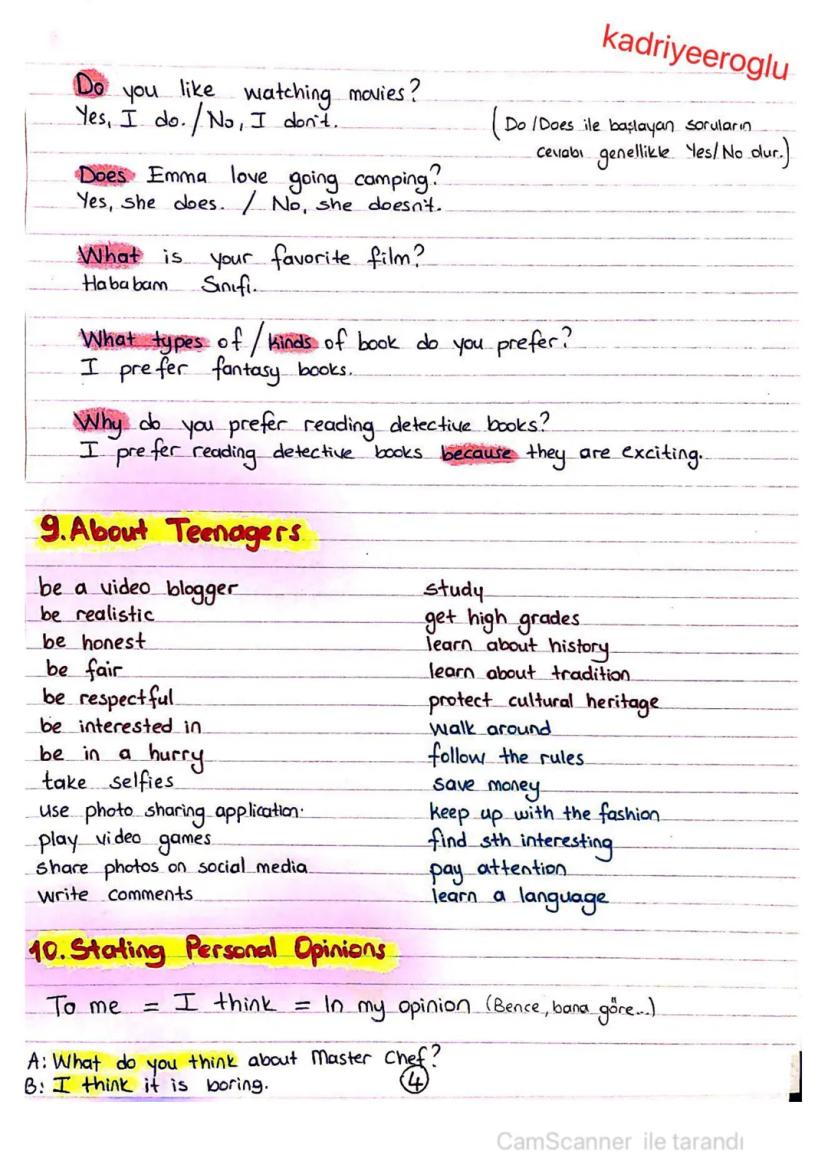 kadriyeeroglu
Do you like watching movies?
Yes, I do. / No, I don't.
(Do / Does ile başlayan soruların
cevabı genellikle Yes / No dur.)
Does Emma love going camping?
Yes, she does. / No, she doesn't.
What is your favorite film?
Hababam Sınıfı.
What types of / kinds of book do you prefer?
I prefer fantasy books.
Why do you prefer reading detective books?
I prefer reading detective books because they are exciting.
9. About Teenagers
be a video blogger
be realistic
be honest
be fair
be respectful
be interested in
be in a hurry
take selfies
use photo sharing application.
play video games
share photos on social media
write comments
study
get high grades
learn about history
learn about tradition
protect cultural heritage
walk around
follow the rules
save money
keep up with the fashion
find sth interesting
pay attention
learn a language
10. Stating Personal Opinions
To me = I think = In my opinion (Bence, bana göre...)
A: What do you think about Master Chef?
B: I think it is boring.
4
CamScanner ile tarandı